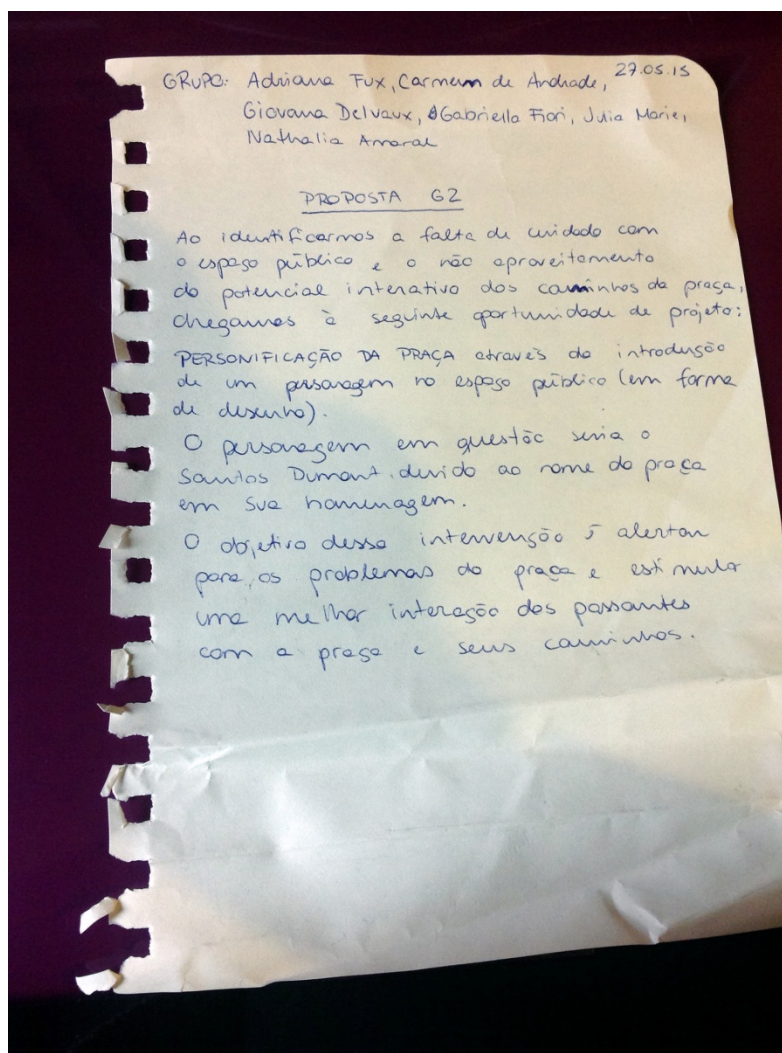 GRUPO: Adriana Fux, Carmem de Andrade, 27.05.15
Giovana Delvaux, Gabriella Fiori, Julia Marie,
Nathalia Amaral
PROPOSTA G2
Ao identificarmos a falta de cuidado com
o espaço público e o não aproveitamento
do potencial interativo dos caminhos da praça,
chegamos à seguinte oportunidade de projeto:
PERSONIFICAÇÃO DA PRAÇA através da introdução
de um personagem no espaço público (em forma
de desenho).
O personagem em questão seria o
Santos Dumont, devido ao nome da praça
em sua homenagem.
O objetivo dessa intervenção é alertar
para os problemas da praça e estimular
uma melhor interação dos passantes
com a praça e seus caminhos.